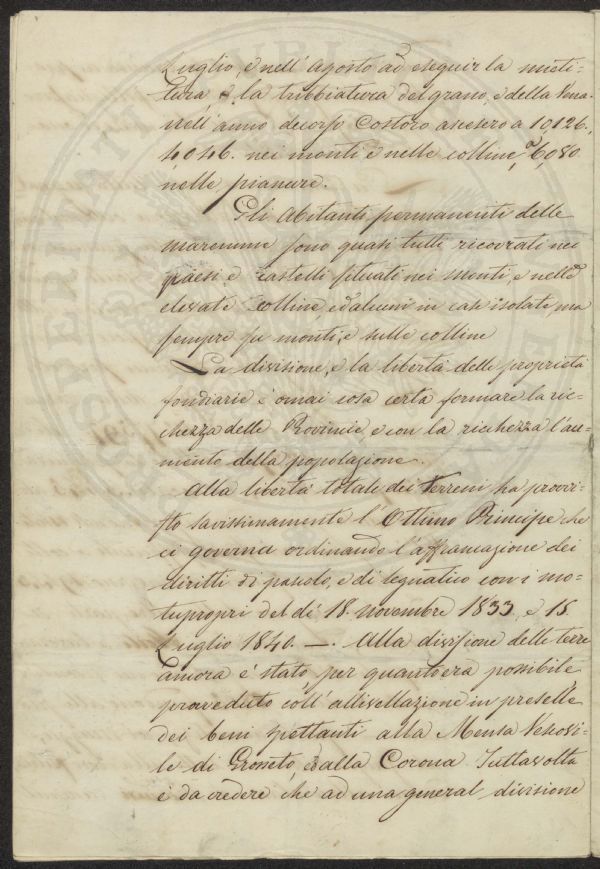 Luglio, e nell' agosto ad eseguir la mieti-
tura e la tribbiatura del grano, e della Vena
nell' anno decorso Costoro ascesero a 10,126.
4046. nei monti e nelle colline, e 6,080
nelle pianure.
Gli Abitanti permanenti delle
maremme sono quasi tutti ricovrati nei
paesi e castelli situati nei Monti, e nelle
elevate colline, ed alcuni in case isolate, ma
sempre su monti, e sulle colline
La divisione, e la libertà delle proprietà
fondiarie è omai cosa certa formare la ric-
chezza delle Provincie, e con la ricchezza l'au-
mento della popolazione.
Alla libertà totale dei Terreni ha provvi-
sto savissimamente l' Ottimo Principe che
ci governa ordinando l'affrancazione dei
diritti di pascolo, e di legnatico con i mo-
tupropri del dì 18. novembre 1833. e 18.
Luglio 1840. —. Alla divisione delle terre
ancora è stato per quanto era possibile
proveduto coll' allivellazione in preselle
dei beni spettanti alla Mensa Vescovi-
le di Grosseto, e alla Corona Tuttavolta
è da credere che ad una general divisione
PROSPERITATI